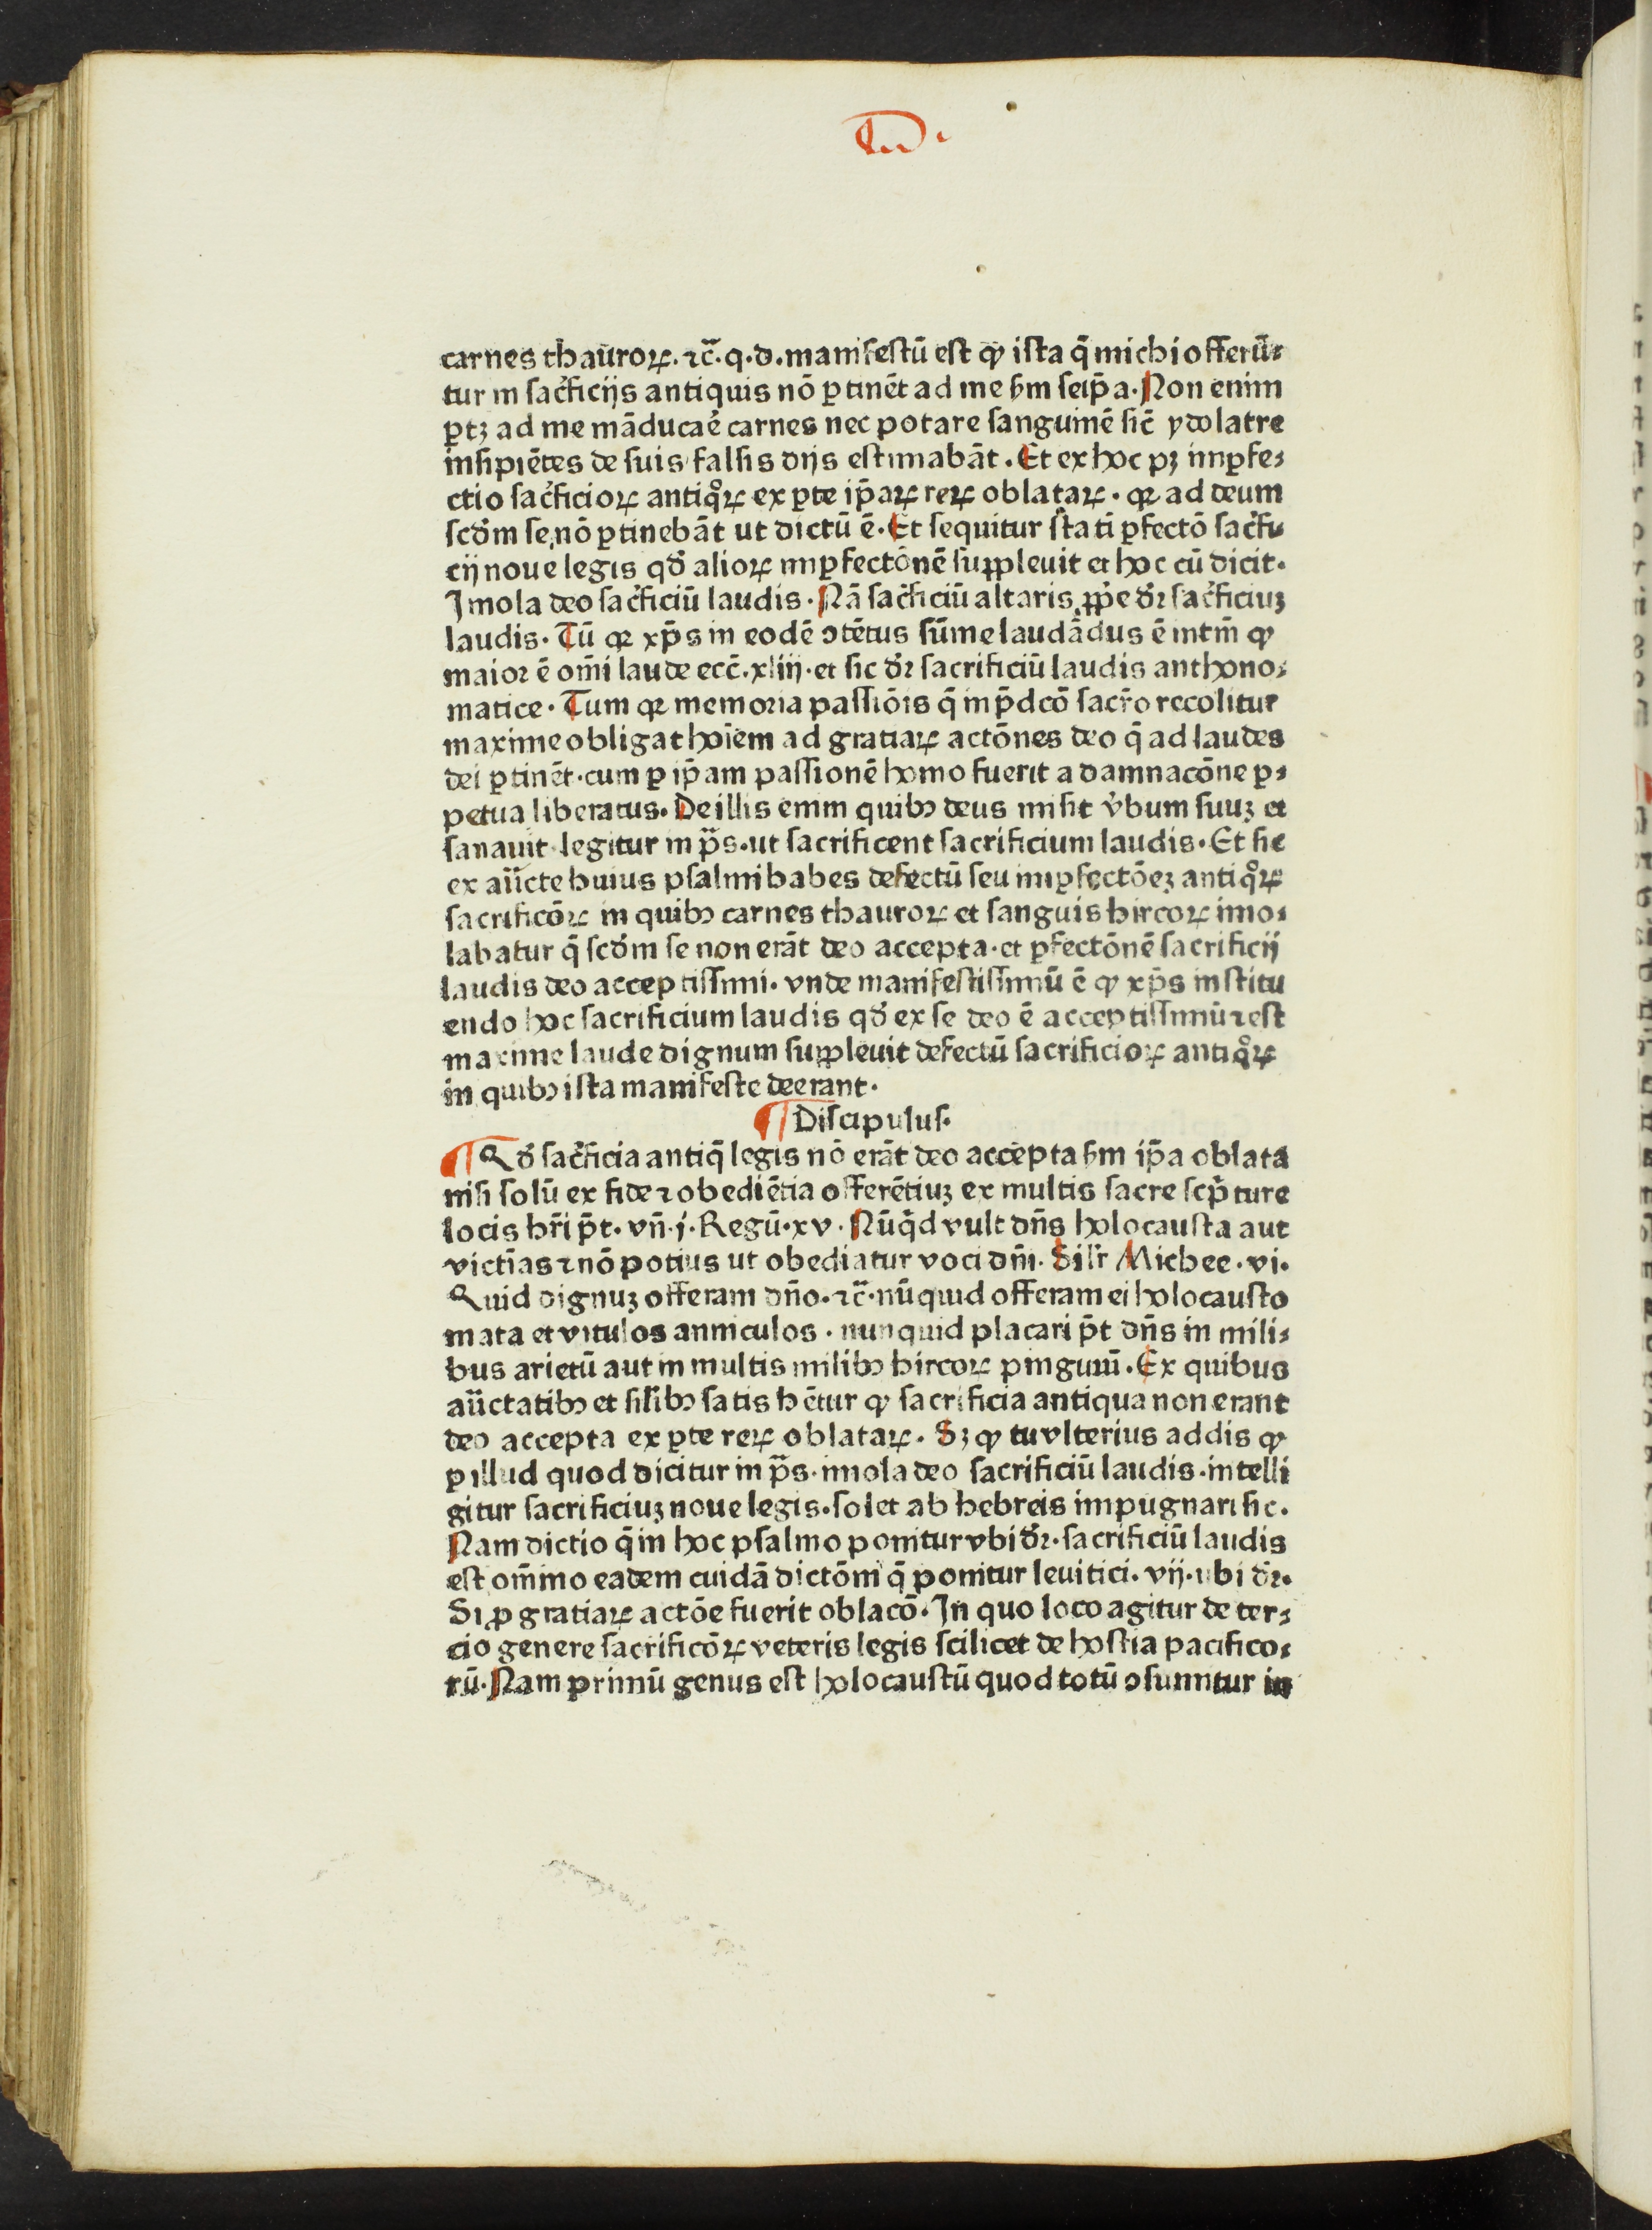 carnes thaūroꝝ. ⁊c̄. q. d. manifestū est ꝙ ista q̄ michi offerū⸗
tur in sac̓ficijs antiquis nō ꝑtinēt ad me ẜm seip̄a. Non enim
ꝑtꝫ ad me māducaꝛ̄e carnes nec potare sanguinē sic̄ ydolatre
insipiētes de suis falsis dijs estimabāt. Et ex hoc pꝫ imꝑfe⸗
ctio sac̓ficioꝝ antiqͦꝝ ex ꝑte ip̄aꝝ reꝝ oblataꝝ. qꝛ ad deum
scd̓m se nō ꝑtinebāt ut dictū ē. Et sequitur stati ꝑfectō sac̓fi⸗
cij noue legis qd̓ alioꝝ imꝑfectōnē suppleuit et hoc cū dicit.
Imola deo sac̓ficiū laudis. Nā sac̓ficiū altaris ꝓp̄e dꝛ̄ sac̓ficiuꝫ
laudis. Tū qꝛ xp̄s in eodē ↄtētus sūme laudādus ē intm̄ ꝙ
maior ē om̄i laude ecc̄. xliij. et sic dꝛ̄ sacrificiū laudis anthono⸗
matice. Tum qꝛ memoria passiōis q̄ in p̄dcō sacr̄o recolitur
maxime obligat hoīem ad gratiaꝝ actōnes deo q̄ ad laudes
dei ꝑtinēt. cum ꝑ ip̄am passionē homo fuerit a damnacōne ꝑ⸗
petua liberatus. De illis enim quibꝰ deus misit v̓bum suuꝫ et
sanauit legitur in p̄s. ut sacrificent sacrificium laudis. Et sic
ex aūcte huius psalmi habes defectū seu imꝑfectōeꝫ antiqͦꝝ
sacrificōꝝ in quibꝰ carnes thauroꝝ et sanguis hircoꝝ imo⸗
labatur q̄ scd̓m se non erāt deo accepta. et ꝑfectōnē sacrificij
laudis deo acceptissimi. vnde manifestissimū ē ꝙ xp̄s institu
endo hoc sacrificium laudis qd̓ ex se deo ē acceptissimū ⁊ est
maxime laude dignum suppleuit defectū sacrificioꝝ antiqͦꝝ
in quibꝰ ista manifeste deerant.
¶ Discipulus.
¶ Qd̓ sac̓ficia antiq̄ legis nō erāt deo accepta ẜm ip̄a oblata
nisi solū ex fide ⁊ obediētia offerētiuꝫ ex multis sacre scp̄ture
locis hr̄i p̄t. vn̄. j. Regū. xv. Nūq̄d vult dn̄s holocausta aut
victīas ⁊ nō potius ut obediatur voci dn̄i. Sil̄r Michee. vi.
Quid dignuꝫ offeram dn̄o. ⁊c̄. nū quid offeram ei holocausto
mata et vitulos anniculos. nunquid placari p̄t dn̄s in mili⸗
bus arietū aut in multis milibꝰ hircoꝝ pinguiū. Ex quibus
aūctatibꝰ et sil̄ibꝰ satis hētur ꝙ sacrificia antiqua non erant
deo accepta ex ꝑte reꝝ oblataꝝ. Sꝫ ꝙ tu vlterius addis ꝙ
ꝑ illud quod dicitur in p̄s. imola deo sacrificiū laudis. intelli
gitur sacrificiuꝫ noue legis. solet ab hebreis impugnari sic.
Nam dictio q̄ in hoc psalmo ponitur vbi dꝛ̄. sacrificiū laudis
est om̄ino eadem cuidā dictōni q̄ ponitur leuitici. vij. ubi dꝛ̄.
Si ꝓ gratiaꝝ actōe fuerit oblacō. In quo loco agitur de ter⸗
cio genere sacrificōꝝ veteris legis scilicet de hostia pacifico⸗
rū. Nam primū genus est holocaustū quod totū ↄsumitur in